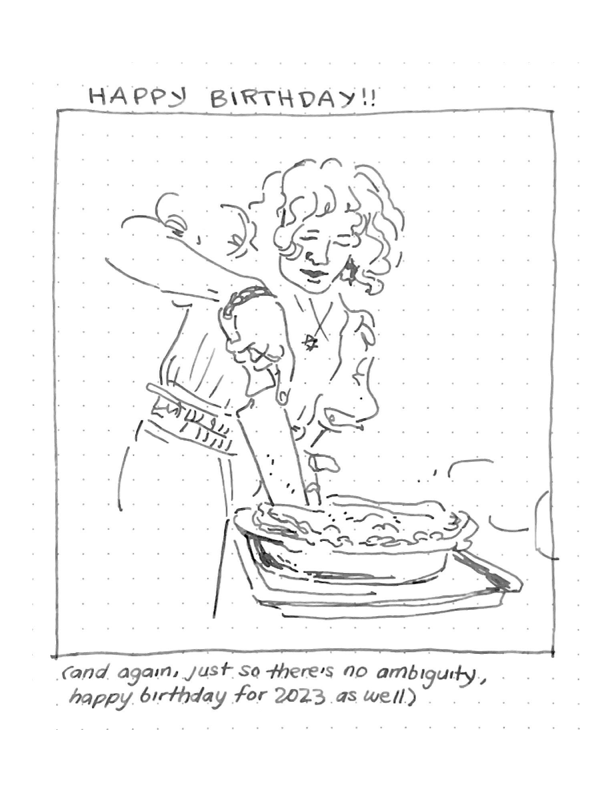 HAPPY BIRTHDAY!!
(and again, just so there's no ambiguity,
happy birthday for 2023 as well)